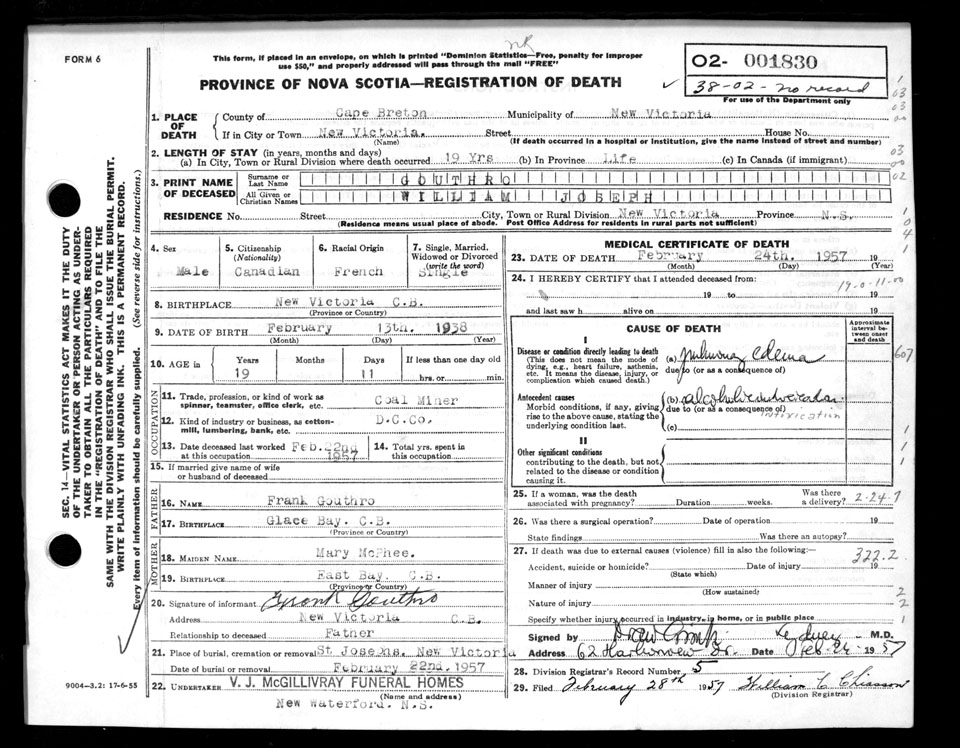 FORM 6
nk
This form, if placed in an envelope, on which is printed "Dominion Statistics—Free, penalty for improper
use $50," and properly addressed will pass through the mail "FREE"
PROVINCE OF NOVA SCOTIA—REGISTRATION OF DEATH
02- 001830
38-02-no record
For use of the Department only
1. PLACE OF DEATH
County of Cape Breton Municipality of New Victoria
If in City or Town New Victoria. Street House No.
(Name) (If death occurred in a hospital or institution, give the name instead of street and number)
2. LENGTH OF STAY (in years, months and days)
(a) In City, Town or Rural Division where death occurred 19 Yrs (b) In Province Life (c) In Canada (if immigrant)
3. PRINT NAME OF DECEASED
Surname or Last Name GOUTHRO
All Given or Christian Names WILLIAM JOSEPH
RESIDENCE No. Street City, Town or Rural Division New Victoria Province N.S.
(Residence means usual place of abode. Post Office Address for residents in rural parts not sufficient)
4. Sex 5. Citizenship (Nationality) 6. Racial Origin 7. Single, Married, Widowed or Divorced (write the word)
Male Canadian French Single
8. BIRTHPLACE New Victoria C.B.
(Province or Country)
9. DATE OF BIRTH February 13th. 1938
(Month) (Day) (Year)
10. AGE in Years Months Days If less than one day old
19 11 hrs. or min.
OCCUPATION
11. Trade, profession, or kind of work as
spinner, teamster, office clerk, etc. Coal Miner
12. Kind of industry or business, as cotton-
mill, lumbering, bank, etc. D.C.Co.
13. Date deceased last worked at this occupation Feb.22nd 1957
14. Total yrs. spent in this occupation
15. If married give name of wife
or husband of deceased
FATHER
16. NAME Frank Gouthro
17. BIRTHPLACE Glace Bay. C.B.
(Province or Country)
MOTHER
18. MAIDEN NAME Mary McPhee.
19. BIRTHPLACE East Bay. C.B.
(Province or Country)
20. Signature of informant Frank Gouthro
Address New Victoria C.B.
Relationship to deceased Father
21. Place of burial, cremation or removal St Josephs. New Victoria
Date of burial or removal February 22nd. 1957
22. UNDERTAKER V. J. McGILLIVRAY FUNERAL HOMES
(Name and address)
New Waterford. N.S.
MEDICAL CERTIFICATE OF DEATH
23. DATE OF DEATH February 24th. 1957 19
(Month) (Day) (Year)
24. I HEREBY CERTIFY that I attended deceased from:
19-0-11-00
19 to 19
and last saw h alive on 19
CAUSE OF DEATH
Approximate interval between onset and death
I
Disease or condition directly leading to death
(This does not mean the mode of
dying, e.g., heart failure, asthenia,
etc. It means the disease, injury, or
complication which caused death.)
(a) pulmonary edema
due to (or as a consequence of)
607
Antecedent causes
Morbid conditions, if any, giving
rise to the above cause, stating the
underlying condition last.
(b) alcoholic intoxication
due to (or as a consequence of) intoxication
(c)
II
Other significant conditions
contributing to the death, but not
related to the disease or condition
causing it.
25. If a woman, was the death associated with pregnancy? Duration weeks. Was there a delivery?
2-24-7
26. Was there a surgical operation? Date of operation 19
State findings Was there an autopsy?
27. If death was due to external causes (violence) fill in also the following:
322.2
Accident, suicide or homicide? Date of injury 19
(State which)
Manner of injury
(How sustained)
Nature of injury
Specify whether injury occurred in industry, in home, or in public place
Signed by Sydney M.D.
Address 62 Dr. Date Feb-26 1957
28. Division Registrar's Record Number 5
29. Filed February 28th 1957 William C Chiasson
(Division Registrar)
SEC. 14—VITAL STATISTICS ACT MAKES IT THE DUTY
OF THE UNDERTAKER OR PERSON ACTING AS UNDER-
TAKER TO OBTAIN ALL THE PARTICULARS REQUIRED
IN THE "REGISTRATION OF DEATH" AND TO FILE THE
SAME WITH THE DIVISION REGISTRAR WHO SHALL ISSUE THE BURIAL PERMIT.
WRITE PLAINLY WITH UNFADING INK. THIS IS A PERMANENT RECORD.
Every item of information should be carefully supplied. (See reverse side for instructions.)
9004-3.2: 17-6-55